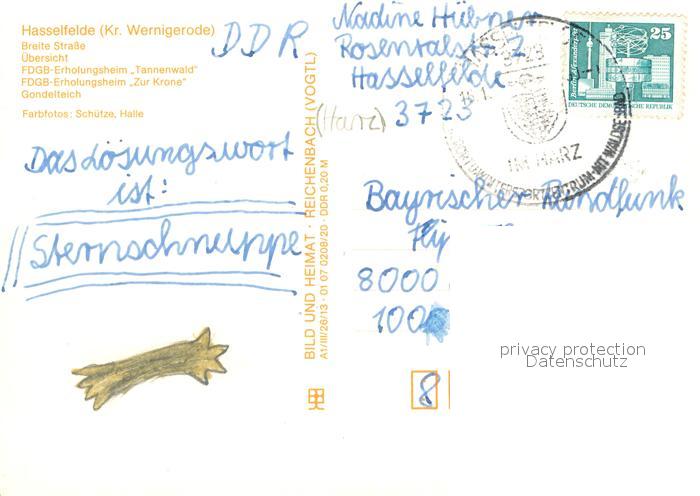 Hasselfelde (Kr. Wernigerode)
Breite Straße
Übersicht
FDGB-Erholungsheim „Tannenwald"
FDGB-Erholungsheim „Zur Krone"
Gondelteich
Farbfotos: Schütze, Halle
DDR
Das Lösungswort
ist:
Sternschnuppe
BILD UND HEIMAT · REICHENBACH (VOGTL)
A1/III/26/13 · 01 07 0208/20 · DDR 0,20 M
Nadine Hübner
Rosentalstr. 2
Hasselfelde
(Harz) 3723
25
DEUTSCHE DEMOKRATISCHE REPUBLIK
3723
IM HARZ
Bayrischer Rundfunk
8000
100
8
privacy protection
Datenschutz